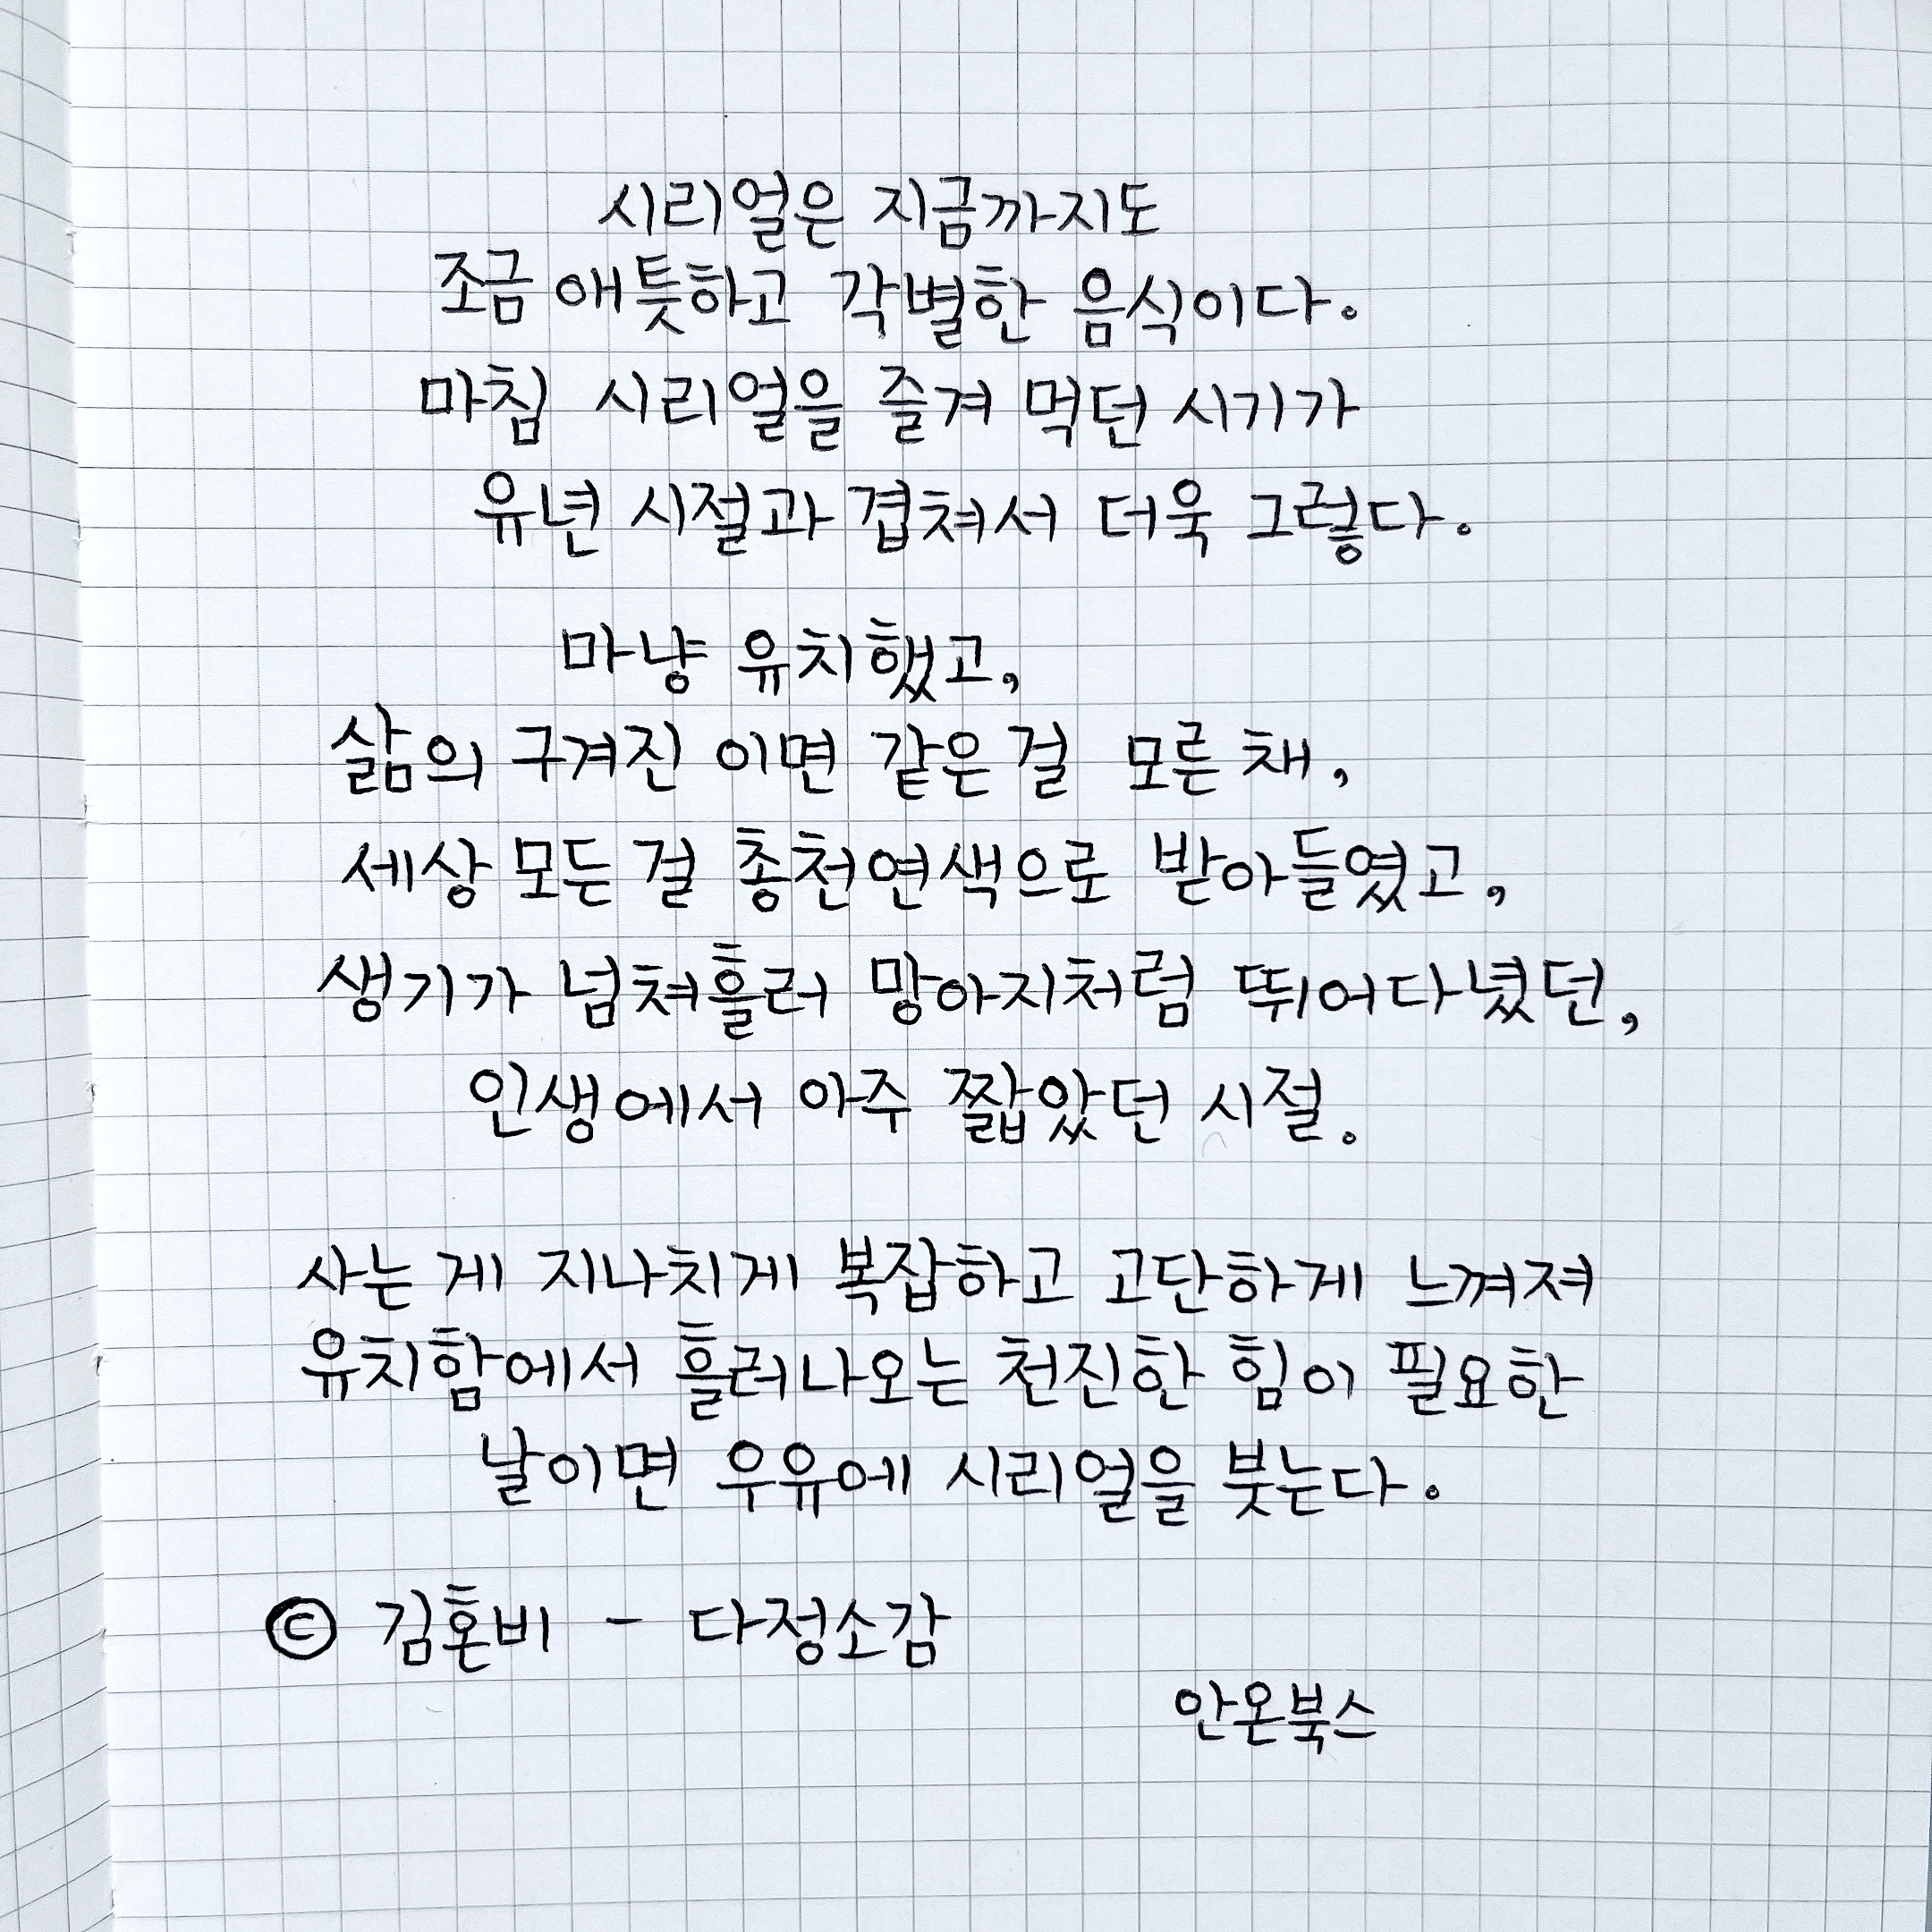 시리얼은 지금까지도
조금 애틋하고 각별한 음식이다.
마침 시리얼을 즐겨 먹던 시기가
유년 시절과 겹쳐서 더욱 그렇다.
마냥 유치했고,
삶의 구겨진 이면 같은 걸 모른 채,
세상 모든 걸 총천연색으로 받아들였고,
생기가 넘쳐흘러 망아지처럼 뛰어다녔던,
인생에서 아주 짧았던 시절.
사는 게 지나치게 복잡하고 고단하게 느껴져
유치함에서 흘러나오는 천진한 힘이 필요한
날이면 우유에 시리얼을 붓는다.
© 김혼비 - 다정소감
안온북스